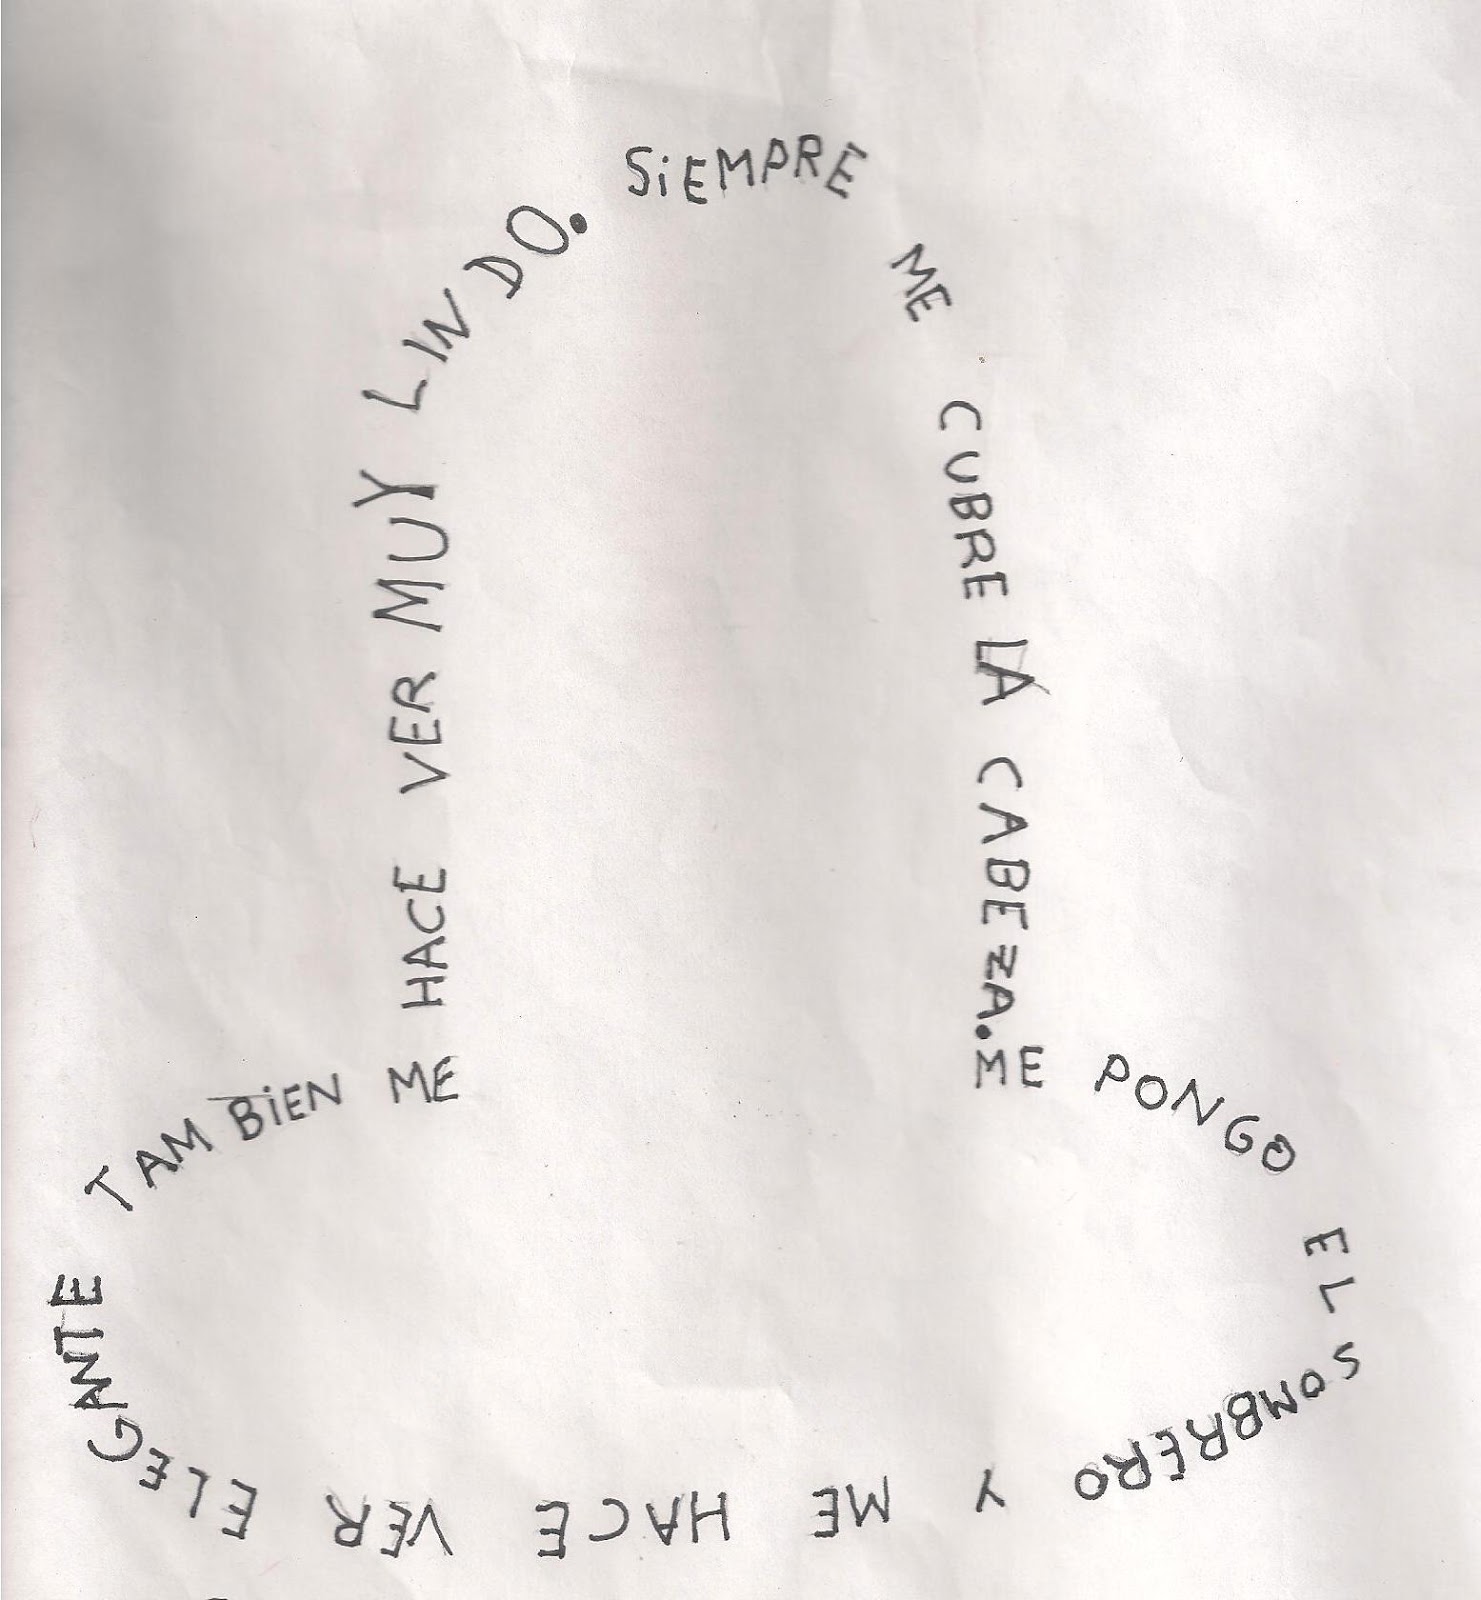 SiEMPRE ME CUBRE LA CABEZA.
ME PONGO EL SOMBRERO Y ME HACE VER ELEGANTE TAMBiEN ME HACE VER MUY LINDO.